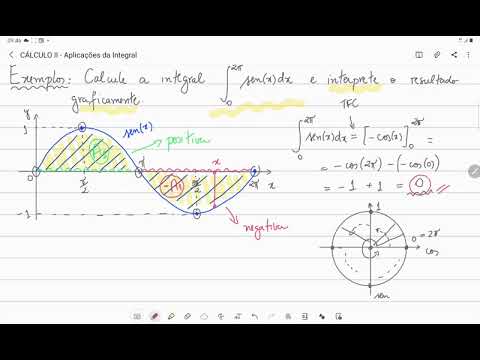 CÁLCULO II - Aplicações da Integral
Exemplo: Calcule a integral ∫₀^{2π} sen(x)dx e interprete o resultado
graficamente
TFC
y
1
sen(x)
positiva
A₁
0
π/2
π
x
3π/2
2π
x
-A₁
-1
negativa
∫₀^{2π} sen(x)dx = [-cos(x)]₀^{2π}
= -cos(2π) - (-cos(0))
= -1 + 1 = 0
1
0=2π
cos
sen